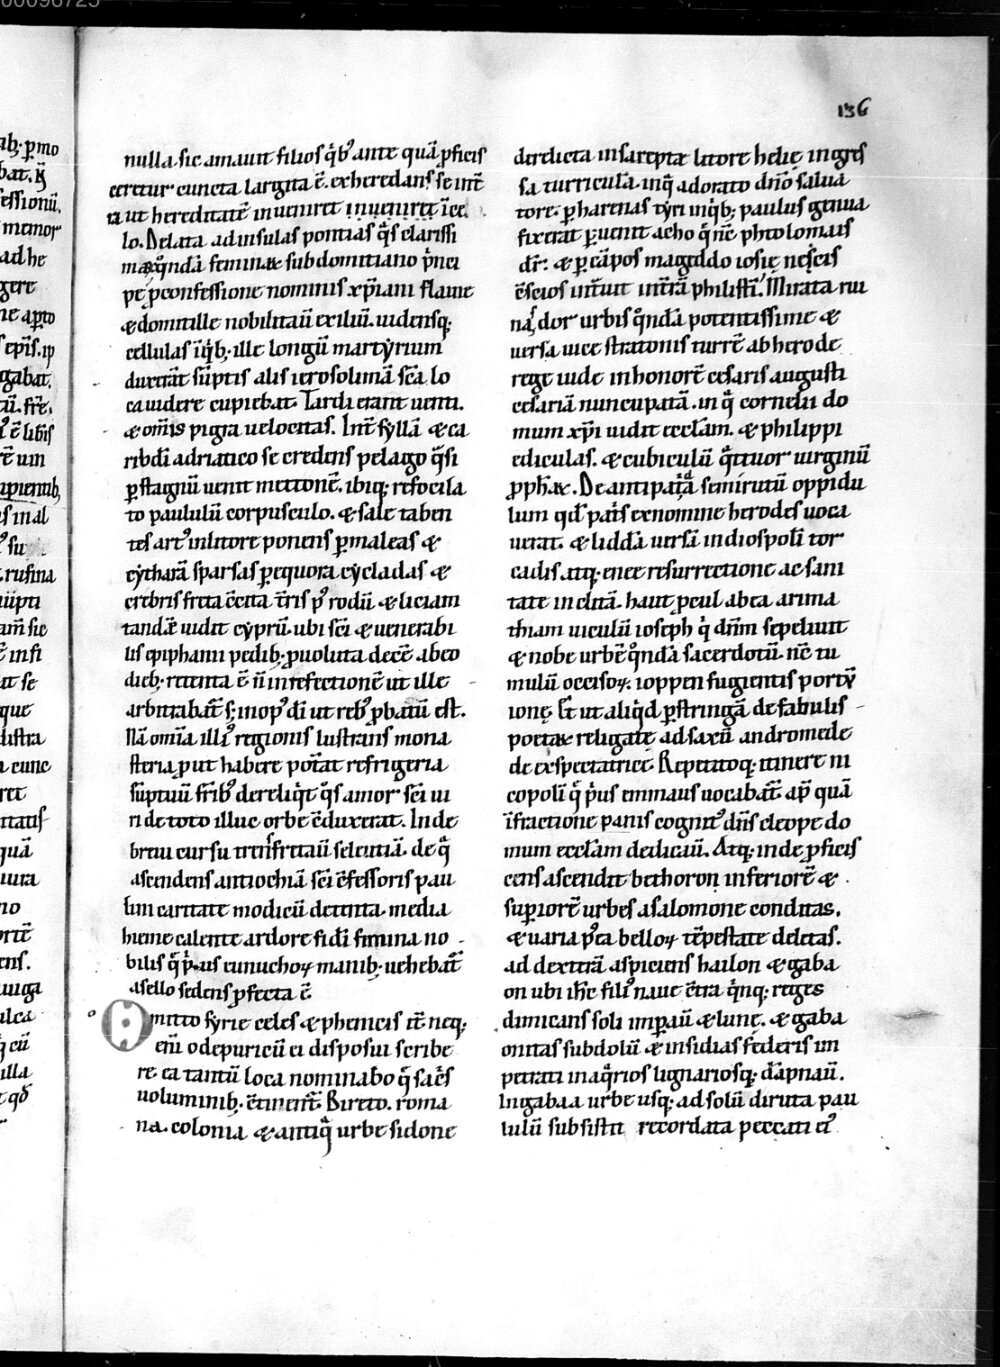 136
nulla sic amauit filios q̄b᷒ ante quā ꝓficis
ceretur cuncta largita ē. exheredans se int̄
ra ut hereditatē inueniret inueniret ī ce
lo. Delata ad insulas pontias q̄s clarissi
mæ q̄ndā feminæ sub domitiano p̄nci
pe ꝓ confessione nominis xp̄iani flauie
& domitille nobilitauit exiliū. uidensq;
cellulas ī q̄b; ille longū martyrium
duxerāt sūptis alis ierosolimā sc̄a lo
ca uidere cupiebat. Tardi erant uenti.
& om̄is pigra uelocitas. Int̄ syllā & ca
ribdī adriatico se credens pelago q̄si
ꝑ stagnū uenit mettonē. ibiq; refocila
to paululū corpusculo. & sale taben
tes art᷒ in litore ponens ꝑ maleas &
cytharā sparsas ꝑ equora cycladas &
crebris freta c̄cita t̄ris p᷒ rodū & liciam
tandē uidit cyprū. ubi sc̄i & uenerabi
lis epiphanii pedib; ꝓuoluta decē ab eo
dieb; retenta ē n̄ in refectionē ut ille
arbitrabat̄ s; in op᷒ di ut reb᷒ ꝓbatū est.
Nā om̄ia illi᷒ regionis lustrans mona
steria ꝓut habere potat refrigeria
sūptuū frīb᷒ dereliq̄t q̄s amor sc̄i ui
ri de toto illuc orbe c̄duxerat. Inde
breui cursu transfretauī seleutiā. de q̄
ascendens antiochiā sc̄i c̄fessoris pau
lini caritate modicū detenta. media
hieme calente ardore fidī femina no
bilis q̄ p̄us eunuchoꝝ manib; uehebat̄
asello sedens ꝓfecta ē.
Omitto syrie celes & phenicis it̄ neq;
enī odepuricū ei disposui scribe
re. ea tantū loca nominabo q̄ sac̄s
uoluminib; c̄tinent̄ Bireto. roma
na. colonia & antiq̄ urbe sidone
derelicta in sareptæ litore helię ingres
sa turricula. in q̄ adorato dn̄o salua
tore. ꝑ harenas tyri in q̄b; paulus genua
fixerat ꝑuenit acho q̄ n̄c phtolomais
dr̄: & ꝑ cāpos mageddo iosię neścis
c̄scios int̄uit int̄rā philistī. Mirata rui
nas dor urbis q̄ndā potentissime &
uersa uice stratonis turrē ab herode
rege iude in honorē cesaris augusti
cesariā nuncupatā. in q̄ cornelii do
mum xp̄i uidit ecclam. & philippi
ediculas. & cubiculū q̄ttuor uirginū
ꝓph&. De antipatā semirutū oppidu
lum qd̄ pat̄s ex nomine herodes uoca
uerat. & liddā uersā in diospolī tor
cadis atq; enee resurrectione ac sani
tate inclitā. haut ꝓcul ab ea arima
thiam uiculū ioseph q̄ dn̄m sepeliuit
& nobe urbē q̄ndā sacerdotū. n̄c tu
mulū occisoꝝ. ioppen fugientis portū
ionę. Et ut aliq̄d ꝑstringā de fabulis
poetæ religate ad saxū andromede
de exspectatrice. Repetitoq; itinere ni
copolī q̄ p̄us emmaus uocabat̄ ap̄ quā
ī fractione panis cognit᷒ dn̄s cleope do
mum ecclam dedicauī. Atq; inde ꝓficis
cens ascendit bethoron inferiorē &
superiorē urbes a salomone conditas.
& uaria p᷒ea belloꝝ tēpestate deletas.
ad dexterā aspiciens hailon & gaba
on ubi ih̄c fili᷒ naue c̄tra q̄nq; reges
dimicans soli imꝑauī & lunę. & gaba
onitas sub dolū & insidias federis im
petrati in aq̄rios lignariosq; dāpnauī.
In gabaa urbe usq; ad solū diruta pau
lulū subsistit recordata peccati ei᷒